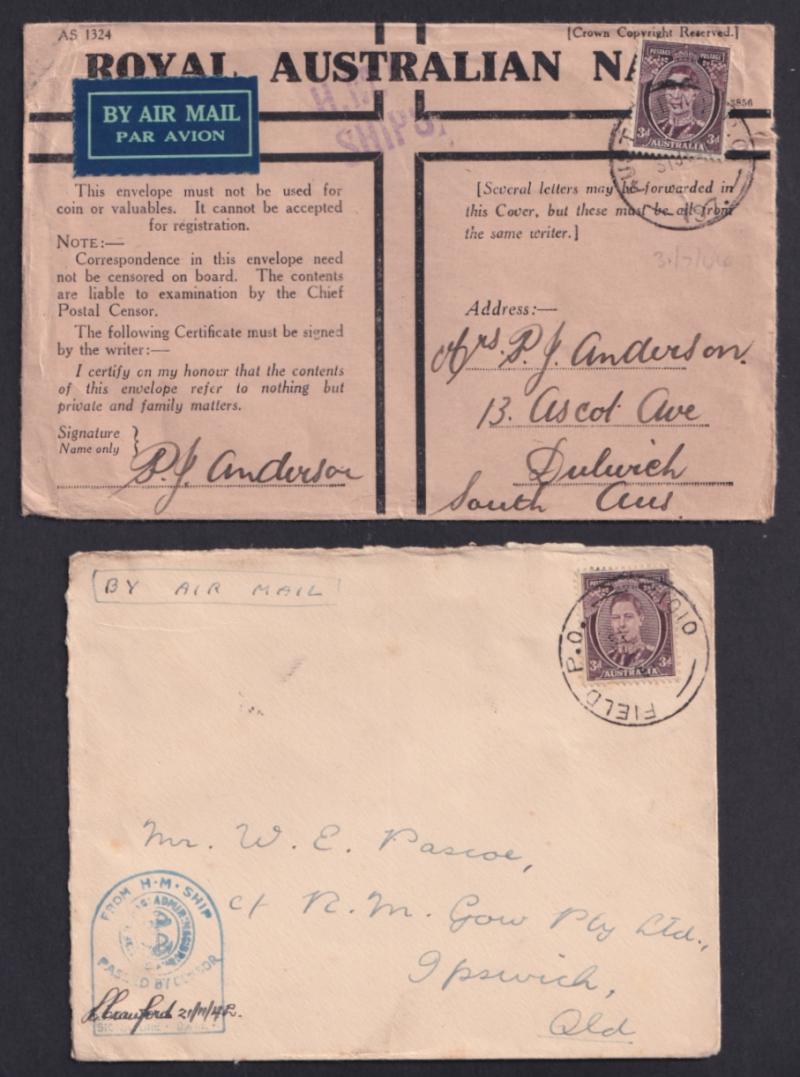 AS 1324
[Crown Copyright Reserved.]
ROYAL AUSTRALIAN NA
H.M.
SHIPS.
BY AIR MAIL
PAR AVION
3856
POSTAGE POSTAGE
3d 3d
AUSTRALIA
This envelope must not be used for
coin or valuables. It cannot be accepted
for registration.
NOTE:—
Correspondence in this envelope need
not be censored on board. The contents
are liable to examination by the Chief
Postal Censor.
The following Certificate must be signed
by the writer:—
I certify on my honour that the contents
of this envelope refer to nothing but
private and family matters.
Signature
Name only
P.J. Anderson
[Several letters may be forwarded in
this Cover, but these must be all from
the same writer.]
Address:—
Mrs. P. J. Anderson.
13. Ascot Ave
Dulwich
South Aus.
BY AIR MAIL
3d 3d
AUSTRALIA
FIELD P.O. 010
Mr. W. E. Pascoe,
c/ R. M. Gow Pty Ltd.,
Ipswich,
Qld
FROM H.M. SHIP
PASSED BY CENSOR
Crawford 21/11/42.